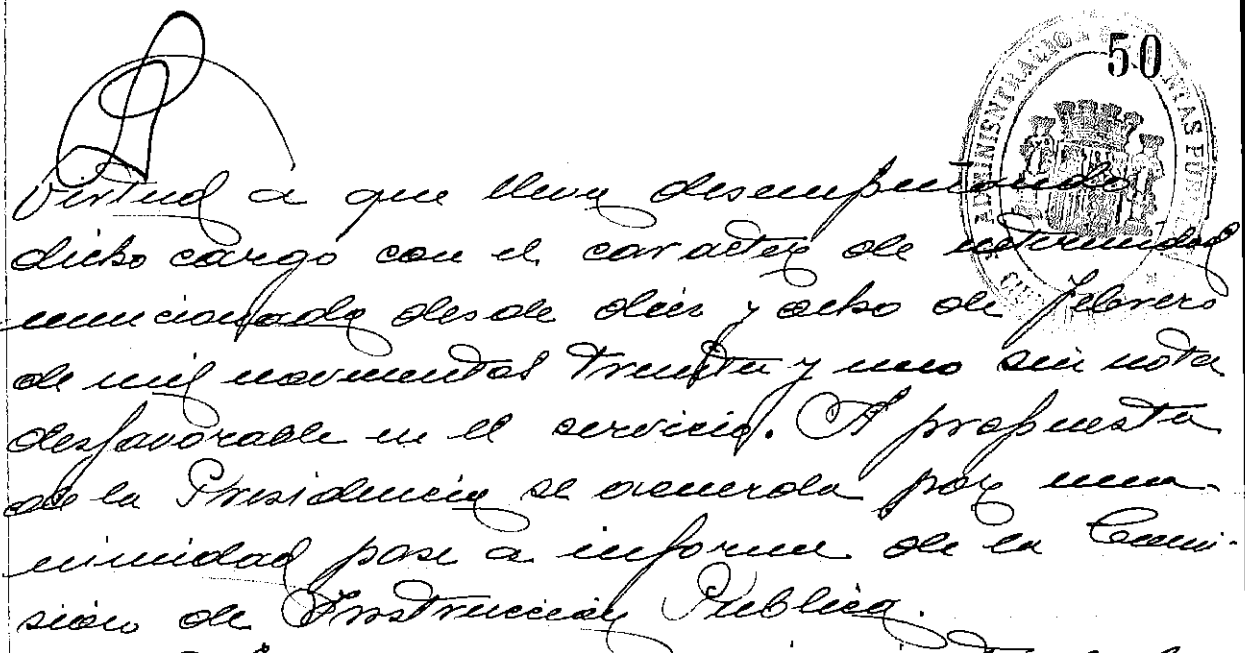 50
ADMINISTRACION DE RENTAS PUB
virtud a que lleva desempeñando
dicho cargo con el caracter de interinidad
mencionada desde diez y ocho de febrero
de mil novecientos treinta y uno sin nota
desfavorable en el servicio. A propuesta
de la Presidencia se acuerda por una-
nimidad pase a informe de la Comi-
sión de Instrucción Publica.